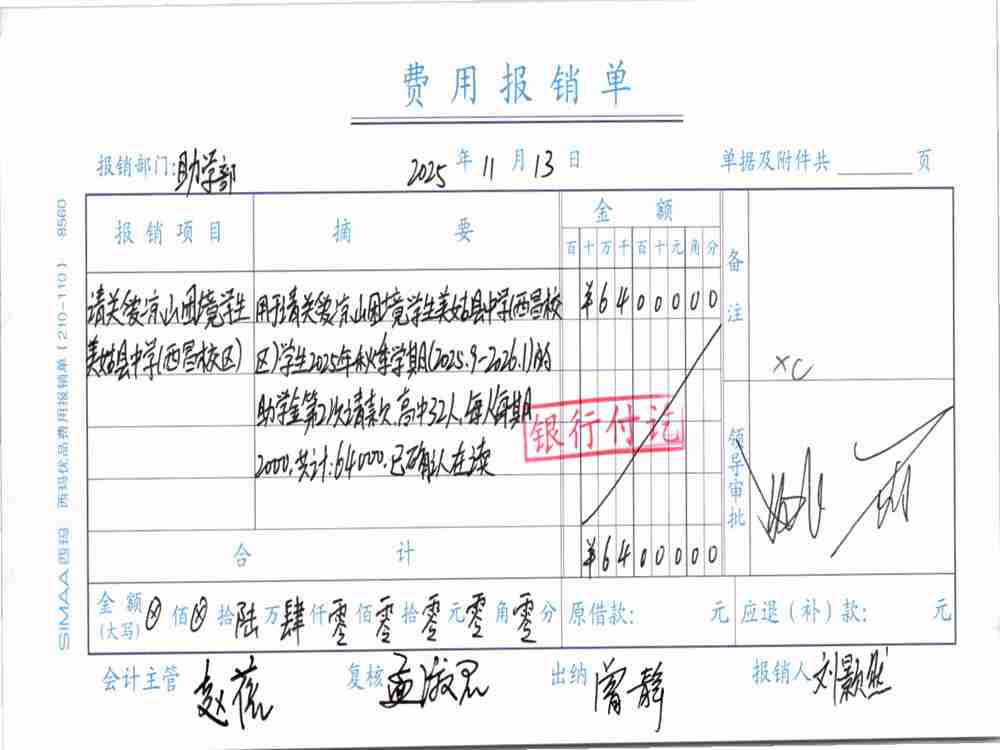 费用报销单
报销部门:助学部 2025年11月13日 单据及附件共 页
报销项目 摘要 金额 备注
百十万千百十元角分
请关爱凉山困境学生 用于请关爱凉山困境学生美姑县中学(西昌校 ¥6400000
美姑县中学(西昌校区) 区)学生2025年秋季学期(2025.9-2026.1)的
XC
助学金第2次请款,高中32人,每人每期
银行付讫
2000,共计:64000.已确认在读
领导审批
合计 ¥6400000
金额(大写) ⊗佰⊗拾陆万肆仟零佰零拾零元零角零分 原借款: 元 应退(补)款: 元
会计主管 赵 复核 孟淑君 出纳 曾静 报销人 刘颢然
SIMAA西玛 西玛优品费用报销单(210-110) 8560